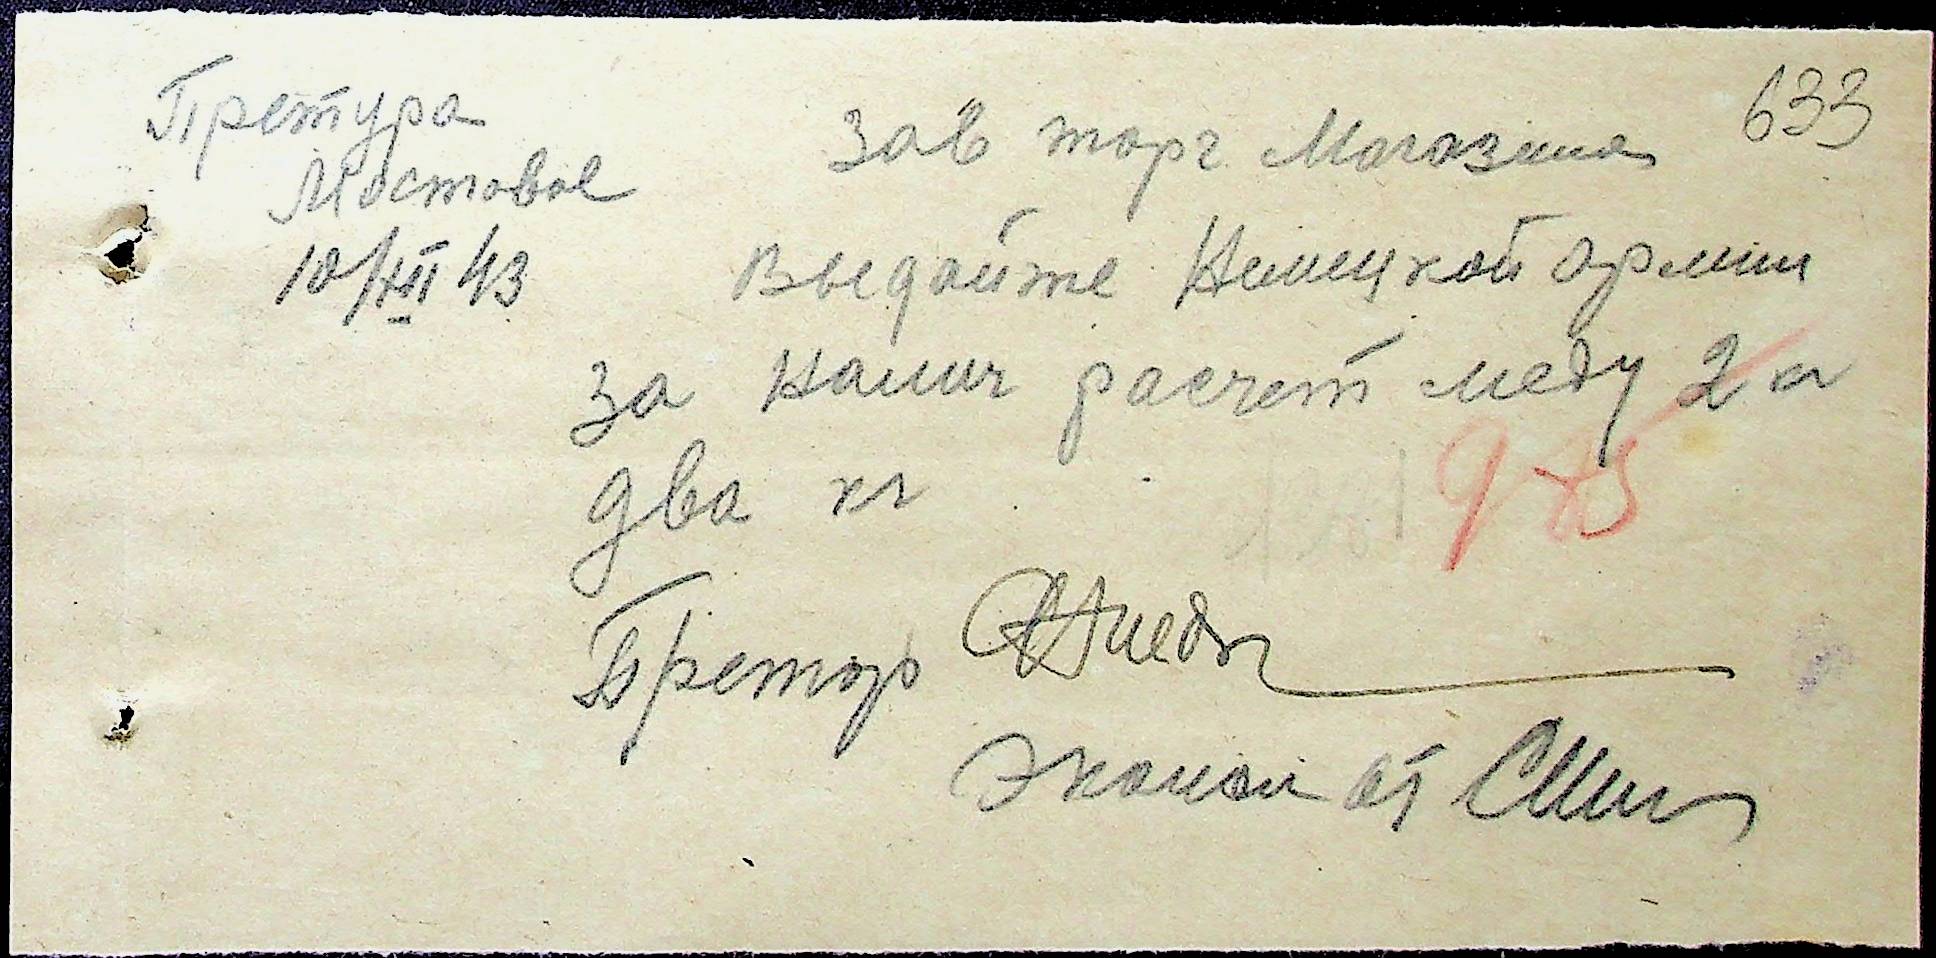 Претура
Мостовое
10/XII 43
633
Зав торг Магазина
Выдайте Немецкой армии
за налич расчет меду 2 кг
два кг
975
Претор
Эконом от